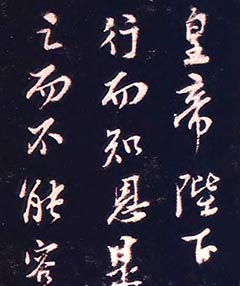 皇帝陛下
行而知恩是
之而不能容